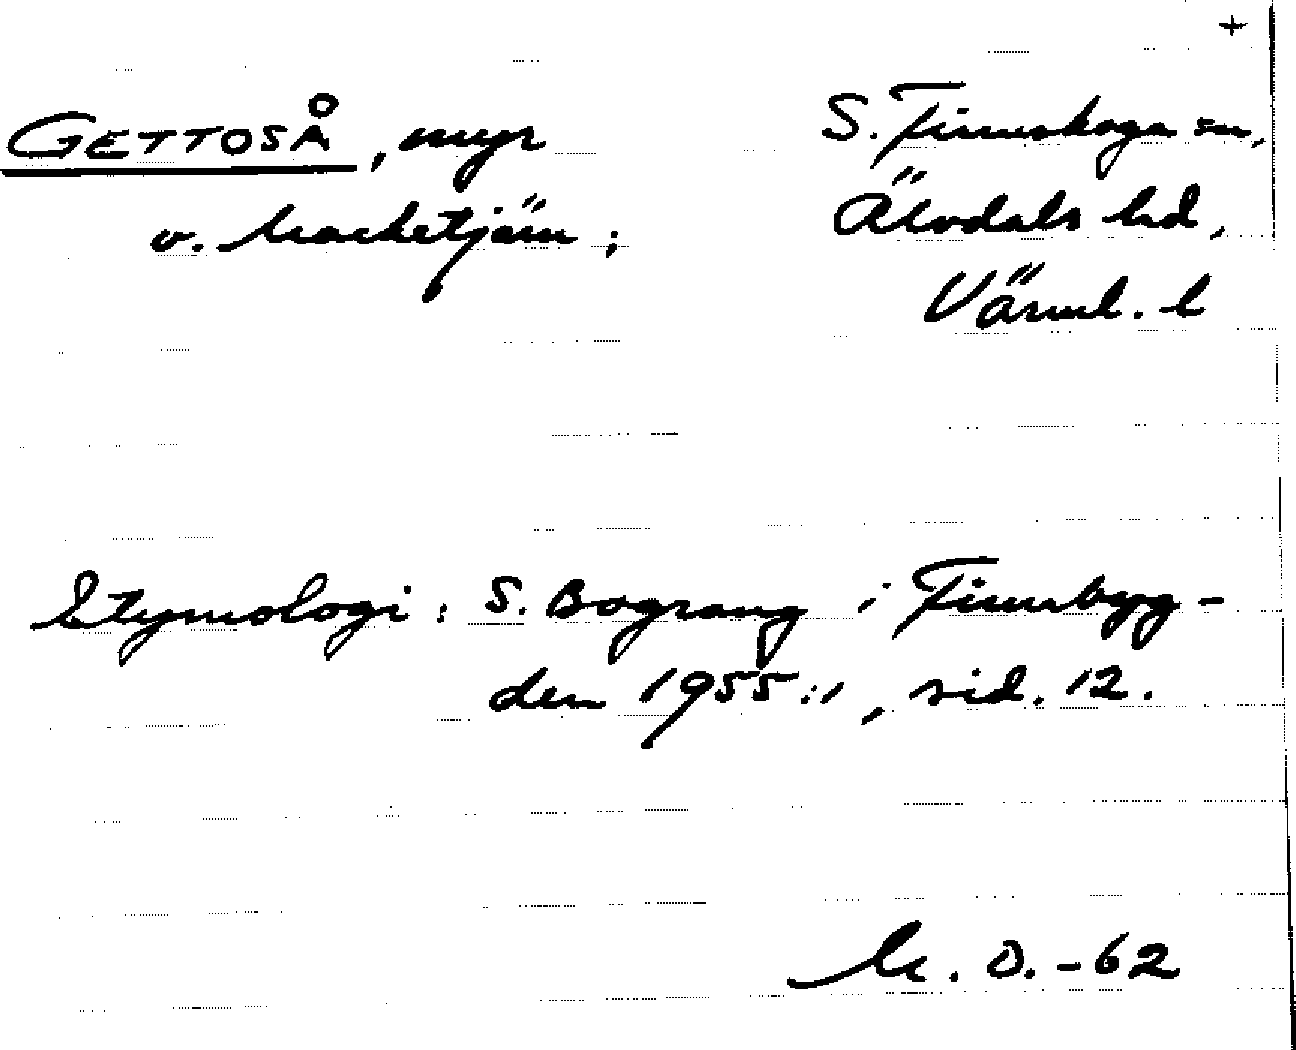 +
GETTOSÅ, myr S. Finnskoga sn,
v. Macketjärn; Älvdals hd,
Värml. l
Etymologi: S. Bograng i Finnbyg-
den 1955:1, sid. 12.
M. O. -62